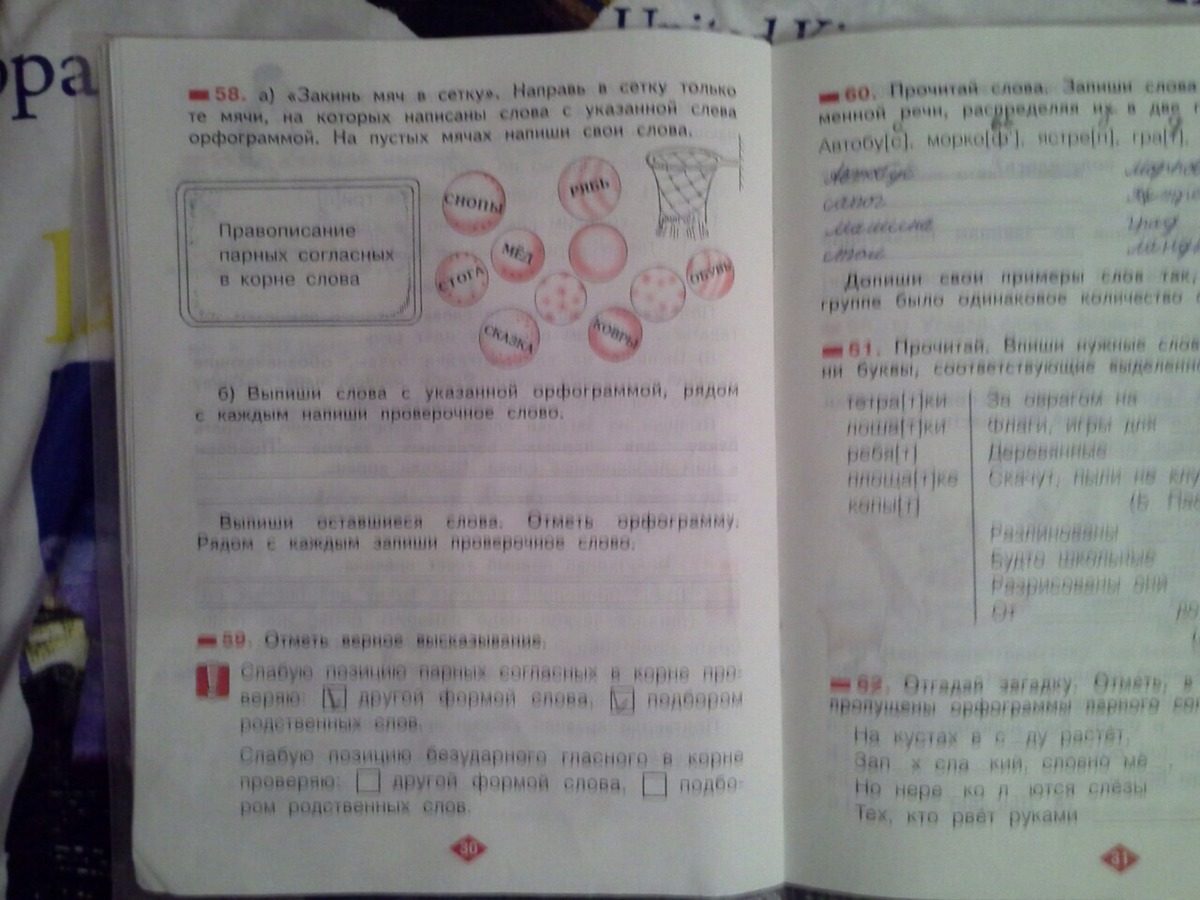 ора
United Ki
58. а) «Закинь мяч в сетку». Направь в сетку только
те мячи, на которых написаны слова с указанной слева
орфограммой. На пустых мячах напиши свои слова.
Правописание
парных согласных
в корне слова
СНОПЫ
РЯБЬ
МЁД
СТОГА
ОБУВЬ
СКАЗКА
КОВРЫ
б) Выпиши слова с указанной орфограммой, рядом
с каждым напиши проверочное слово.
Выпиши оставшиеся слова. Отметь орфограмму.
Рядом с каждым запиши проверочное слово.
59. Отметь верное высказывание.
Слабую позицию парных согласных в корне про-
веряю: другой формой слова, подбором
родственных слов.
Слабую позицию безударного гласного в корне
проверяю: другой формой слова, подбо-
ром родственных слов.
30
60. Прочитай слова. Запиши слова
менной речи, распределяя их в две
Автобу[с], морко[ф'], ястре[п], гра[т],
Автобус
сапог
машина
Град
Допиши свои примеры слов так,
группе было одинаковое количество
61. Прочитай. Впиши нужные слов
ни буквы, соответствующие выделенно
тетра[т]ки
лоша[т]ки
ребя[т]
площа[т]ке
копы[т]
За оврагом на
Флаги, игры для
Деревянные
Скачут, пыли не клу
Разлинованы
Будто школьные
Разрисованы они
От
62. Отгадай загадку. Отметь, в
пропущены орфограммы парного сог
На кустах в с ду растёт,
Зап х сла кий, словно мё ,
Но нере ко л ются слёзы
Тех, кто рвёт руками
31